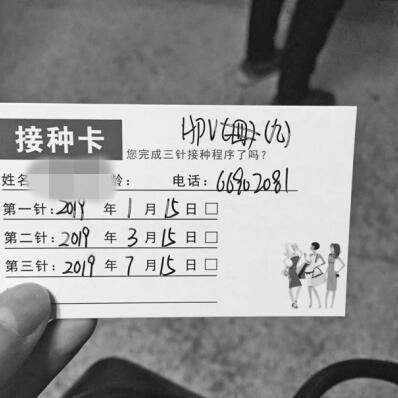 HPV (九)
接种卡
您完成三针接种程序了吗?
姓名 龄: 电话: 66902081
第一针: 2019 年 1 月 15 日 □
第二针: 2019 年 3 月 15 日 □
第三针: 2019 年 7 月 15 日 □